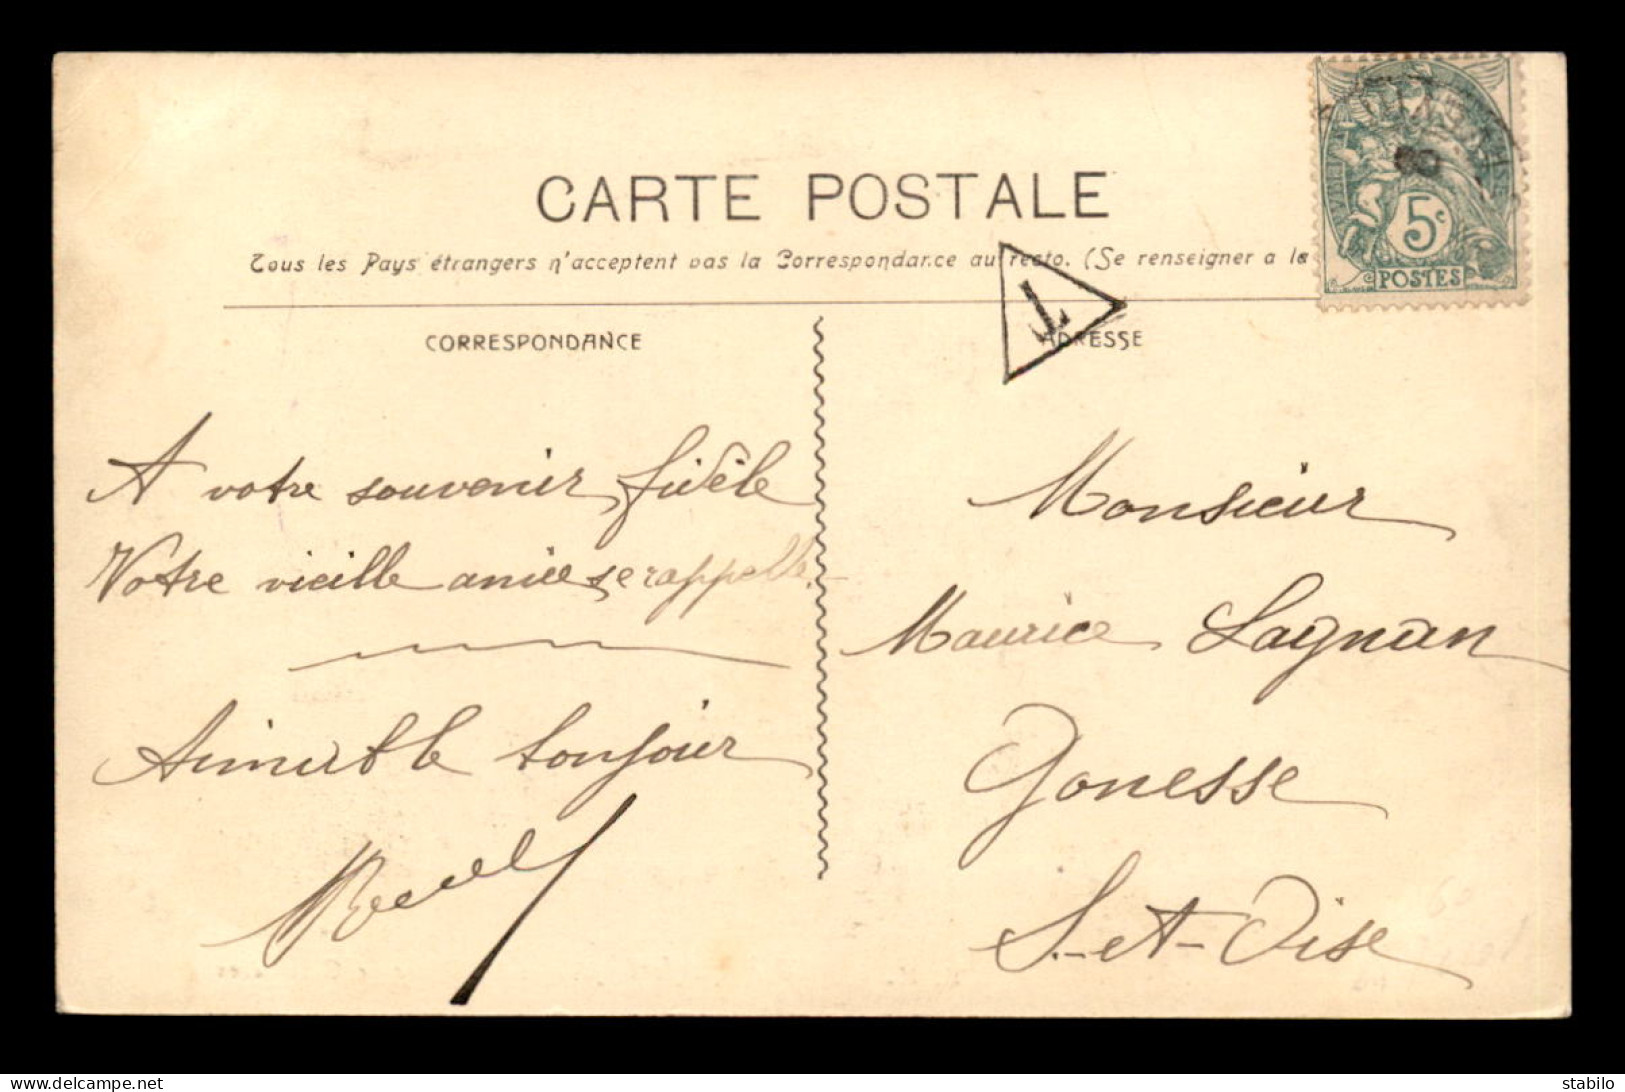 CARTE POSTALE
Tous les Pays étrangers n'acceptent pas la Correspondance au recto. (Se renseigner a la
CORRESPONDANCE
A votre souvenir fidèle
Votre vieille amie se rappelle.
toujour
T
ADRESSE
5c
POSTES
Monsieur
Maurice Lagnan
Gonesse
S.-et-Oise
delcampe.net
stabilo